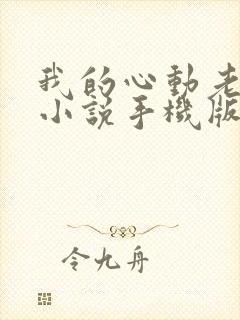 我的心動老
小說手機版
令九舟